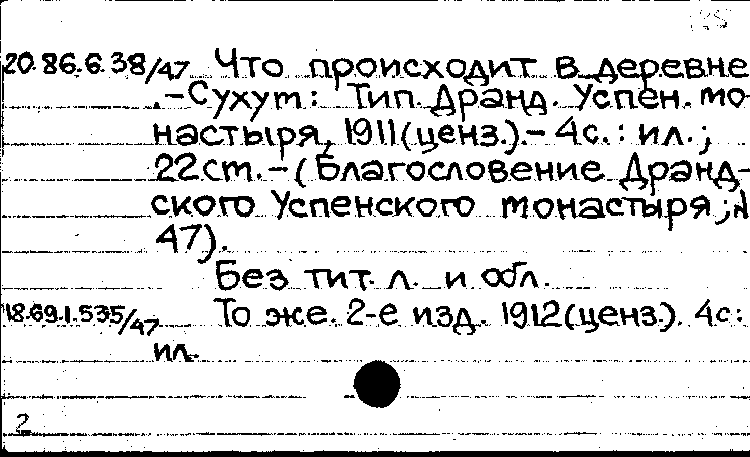 20.86.6.38/47 Что происходит в деревне
.-Сухум: Тип. Дранд. Успен. мо-
настыря, 1911(ценз.).- 4с.: ил.;
22см.-(Благословение Дранд-
ского Успенского монастыря;№
47).
Без тит. л. и обл.
18.69.1.535/47 То же. 2-е изд. 1912(ценз.). 4с:
ил.
2